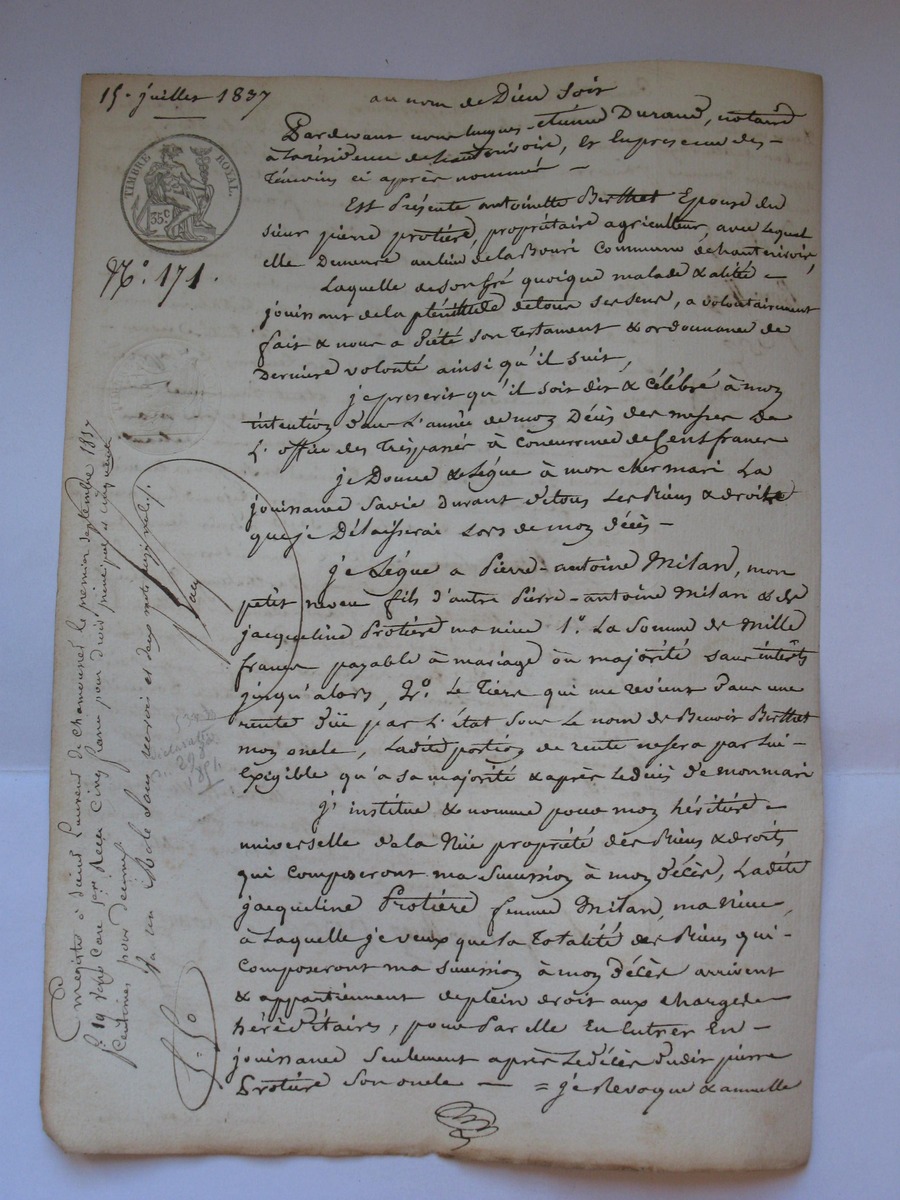 15. juillet 1837
au nom de Dieu soit
TIMBRE ROYAL
35 C
N.º 171.
Pardevant nous Jacques-étienne Durand, notaire
à la résidence de hauterivoire, & en presence des-
témoins ci après nommés -
Est Présente antoinette Berthet Epouse du
sieur pierre protière, propriétaire agriculteur, avec lequel
elle Demeure au lieu de la Bouri commune d'hauterivoire,
Laquelle de son gré quoique malade & alité =
jouissant de la plénitude de tous ses sens, a volontairement
fait & nous a dicté son Testament & ordonnance de
Derniere volonté ainsi qu'il suit,
je prescris qu'il soit dit & célébré à moz
intentioz dans L'année de moz Décès des messes De
L'office des Trépassés à concurrence de Cent francs
je Donne & Lègue à mon cher mari La
jouissance sa vie durant de tous les Biens & droits
que je Délaisserai Lors de moz décès -
je Lègue a Pierre-antoine Milan, mon
petit neveu fils d'autre Pierre-antoine Milan & de
jacqueline Protière ma niece 1.º La Somme de Mille
francs payable à mariage ou majorité sans intérêts
jusqu'alors, 2.º Le Tiers qui me revient dans une
rente düe par L'état sous Le nom de Benoit Berthet
moz oncle, Ladite portioz de rente ne sera par lui-
Exigible qu'à sa majorité & après Le décès de mon mari
J'institue & nomme pour moz héritière =
universelle de la Nüe propriété des Biens & droits
qui composeront ma Successioz à moz décès, Ladite
jacqueline Protière femme Milan, ma Niece,
à Laquelle je veux que la Totalité des Biens qui-
composeront ma Successioz à moz Décès arrivent
& appartiennent de plein droit aux charges
héréditaires, pour Par elle En Entrer En -
jouissance Seulement après Le décès dudit pierre
Protière son oncle — = je Revoque & annulle
Enregistré à Saint Laurent de chamousset le premier septembre 1837
f.º 19 Case 1ère Reçu Cinq francs pour droit principal et cinquante
centimes pour decime